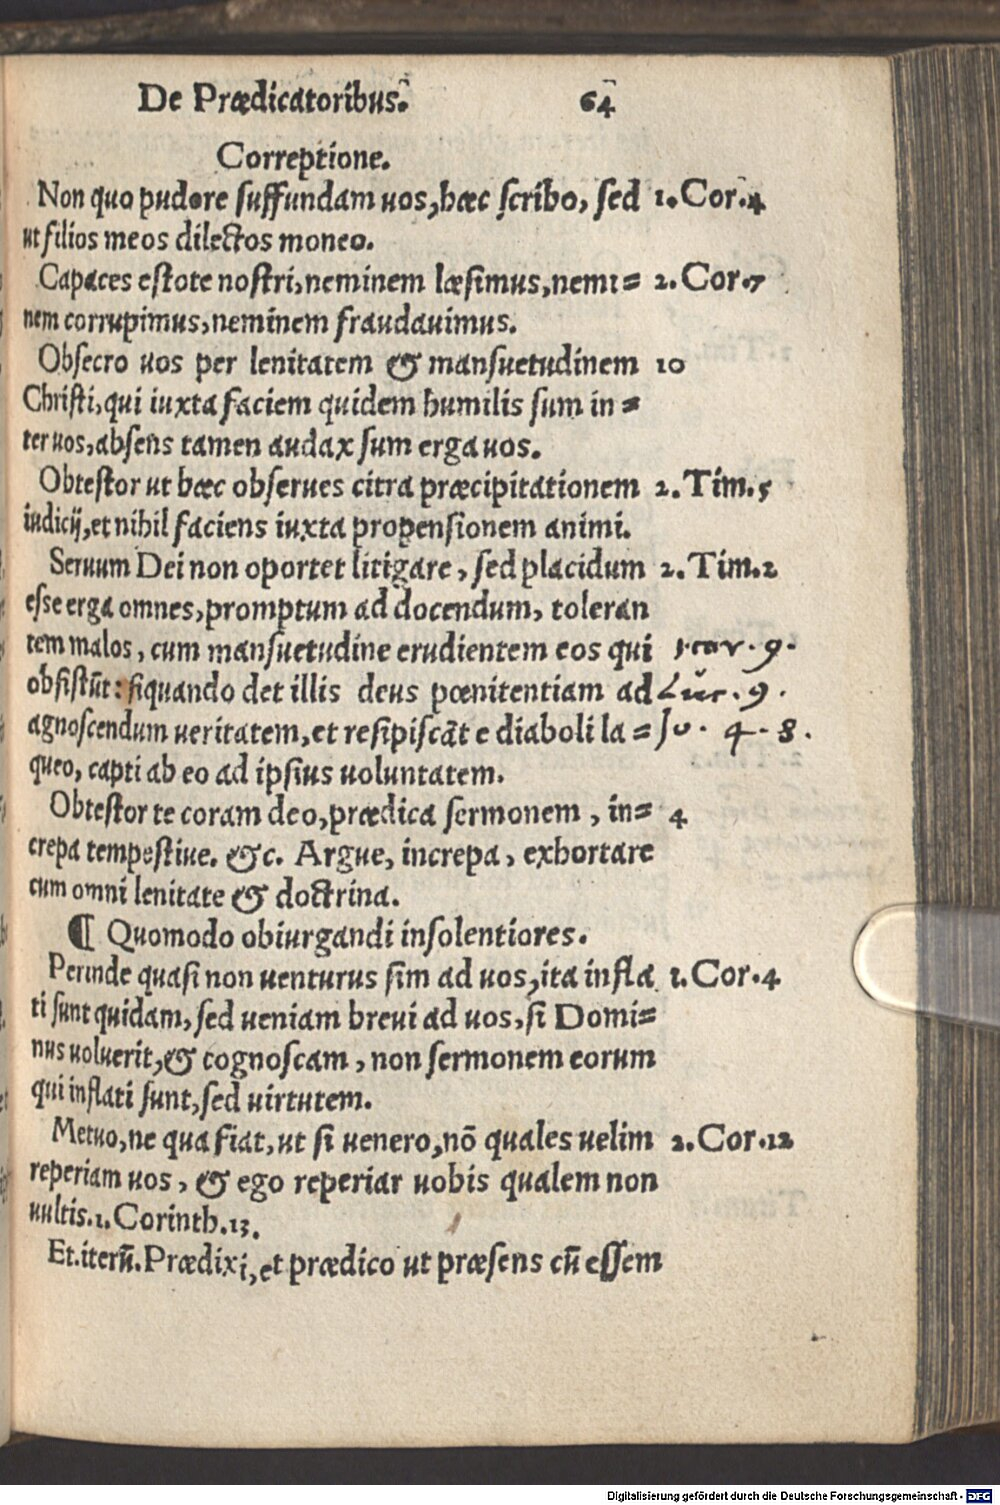 De Prædicatoribus. 64
Correptione.
Non quo pudore suffundam uos, hæc scribo, sed 1. Cor. 4
ut filios meos dilectos moneo.
Capaces estote nostri, neminem læsimus, nemi= 2. Cor. 7
nem corrupimus, neminem fraudauimus.
Obsecro uos per lenitatem & mansuetudinem 10
Christi, qui iuxta faciem quidem humilis sum in=
ter uos, absens tamen audax sum erga uos.
Obtestor ut hæc obserues citra præcipitationem 2. Tim. 5
iudicij, et nihil faciens iuxta propensionem animi.
Seruum Dei non oportet litigare, sed placidum 2. Tim. 2
esse erga omnes, promptum ad docendum, toleran
tem malos, cum mansuetudine erudientem eos qui 1 cor. 9.
obsistūt: siquando det illis deus pœnitentiam ad Luc. 9.
agnoscendum ueritatem, et resipiscāt e diaboli la= Jo. 4. 8.
queo, capti ab eo ad ipsius uoluntatem.
Obtestor te coram deo, prædica sermonem, in= 4
crepa tempestiue. &c. Argue, increpa, exhortare
cum omni lenitate & doctrina.
¶ Quomodo obiurgandi insolentiores.
Perinde quasi non uenturus sim ad uos, ita infla 1. Cor. 4
ti sunt quidam, sed ueniam breui ad uos, si Domi=
nus uoluerit, & cognoscam, non sermonem eorum
qui inflati sunt, sed uirtutem.
Metuo, ne qua fiat, ut si uenero, nō quales uelim 2. Cor. 12
reperiam uos, & ego reperiar uobis qualem non
uultis. 1. Corinth. 13.
Et. iterū. Prædixi, et prædico ut præsens cū essem
Digitalisierung gefördert durch die Deutsche Forschungsgemeinschaft - DFG